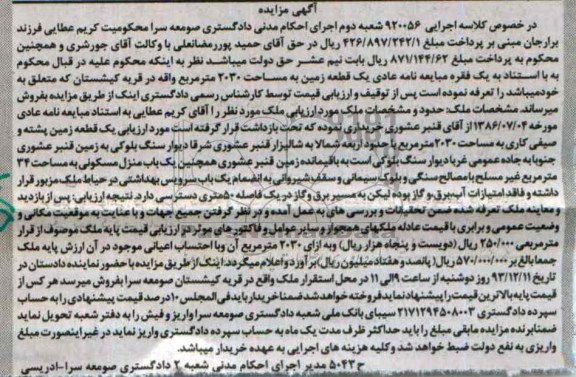 آگهی مزایده
در خصوص کلاسه اجرایی ۹۲۰۰۵۶ شعبه دوم اجرای احکام مدنی دادگستری صومعه سرا محکومیت کریم عطایی فرزند
برارجان مبنی بر پرداخت مبلغ ۴۲۶/۸۹۷/۲۴۲/۱ ریال در حق آقای حمید پوررمضانعلی با وکالت آقای جورشری و همچنین
محکوم به پرداخت مبلغ ۸۷۱/۱۴۴/۶۲ ریال بابت نیم عشر حق دولت میباشد نظر به اینکه محکوم علیه در قبال محکوم
به با استناد به یک فقره مبایعه نامه عادی یک قطعه زمین به مساحت ۲۰۳۰ مترمربع واقع در قریه کیشستان که متعلق به
خودمیباشد را تعرفه نموده است پس از توقیف و ارزیابی قیمت توسط کارشناس رسمی دادگستری اینک از طریق مزایده بفروش
میرساند. مشخصات ملک: حدود و مشخصات ملک مورد ارزیابی ملک مورد نظر را آقای کریم عطایی به استناد مبایعه نامه عادی
مورخه ۱۳۸۶/۰۷/۰۴ از آقای قنبر عشوری خریداری نموده که تحت بازداشت قرار گرفته است مورد ارزیابی یک قطعه زمین پشته و
صیفی کاری به مساحت ۲۰۳۰ مترمربع با حدود اربعه شمالا به شالیزار قنبر عشوری شرقا دیوار سنگ بلوکی به زمین قنبر عشوری
جنوبا به جاده عمومی غربا دیوار سنگ بلوکی است به باقیمانده زمین قنبر عشوری همچنین یک باب منزل مسکونی به مساحت ۳۴
مترمربع غیر مسلح با مصالح سنگی و بلوک سیمانی و سقف شیروانی به انضمام یک باب سرویس بهداشتی در حیاط ملک مزبور قرار
داشته و فاقد امتیازات آب، برق، و گاز بوده لیکن به مسیر برق و گاز در یک فاصله ۵۰ متری دسترسی دارد. نتیجه ارزیابی: پس از بازدید
و معاینه ملک تعرفه شده ضمن تحقیقات و بررسی های به عمل آمده و در نظر گرفتن جمیع جهات و با عنایت به موقعیت مکانی و
وضعیت عمومی و برابری با قیمت عادله ملکهای همجوار و سایر عوامل و فاکتورهای موثر در ارزیابی قیمت پایه ملک موصوف از قرار
مترمربعی ۲۵۰/۰۰۰ ریال (دویست و پنجاه هزار ریال) و به ازای ۲۰۳۰ مترمربع آن و با احتساب اعیانی موجود در آن ارزش پایه ملک
جمعا بالغ بر ۵۷۰/۰۰۰/۰۰۰ ریال (پانصد و هفتاد میلیون ریال) برآورد و اعلام میگردد. اینک از طریق مزایده با حضور نماینده دادستان در
تاریخ ۹۳/۱۲/۱۱ روز دوشنبه از ساعت ۱۹الی ۱۱ در محل استقرار ملک واقع در قریه کیشستان صومعه سرا بفروش میرسد هر کس از
قیمت پایه بالاترین قیمت را پیشنهاد نماید فروخته خواهد شد ضمنا خریدار باید فی المجلس ۱۰ درصد قیمت پیشنهادی را به حساب
سپرده دادگستری ۲۱۷۱۲۹۴۵۰۸۰۰۳ سیبای بانک ملی شعبه دادگستری صومعه سرا واریز و فیش را به دفتر شعبه تحویل نماید
ضمنا برنده مزایده مابقی مبلغ را باید حداکثر ظرف مدت یک ماه به حساب سپرده دادگستری واریز نماید در غیر اینصورت مبلغ
واریزی به نفع دولت ضبط خواهد شد وکلیه هزینه های اجرایی به عهده خریدار میباشد.
ح ۵۰۴۲ مدیر اجرای احکام مدنی شعبه ۲ دادگستری صومعه سرا-ادریسی